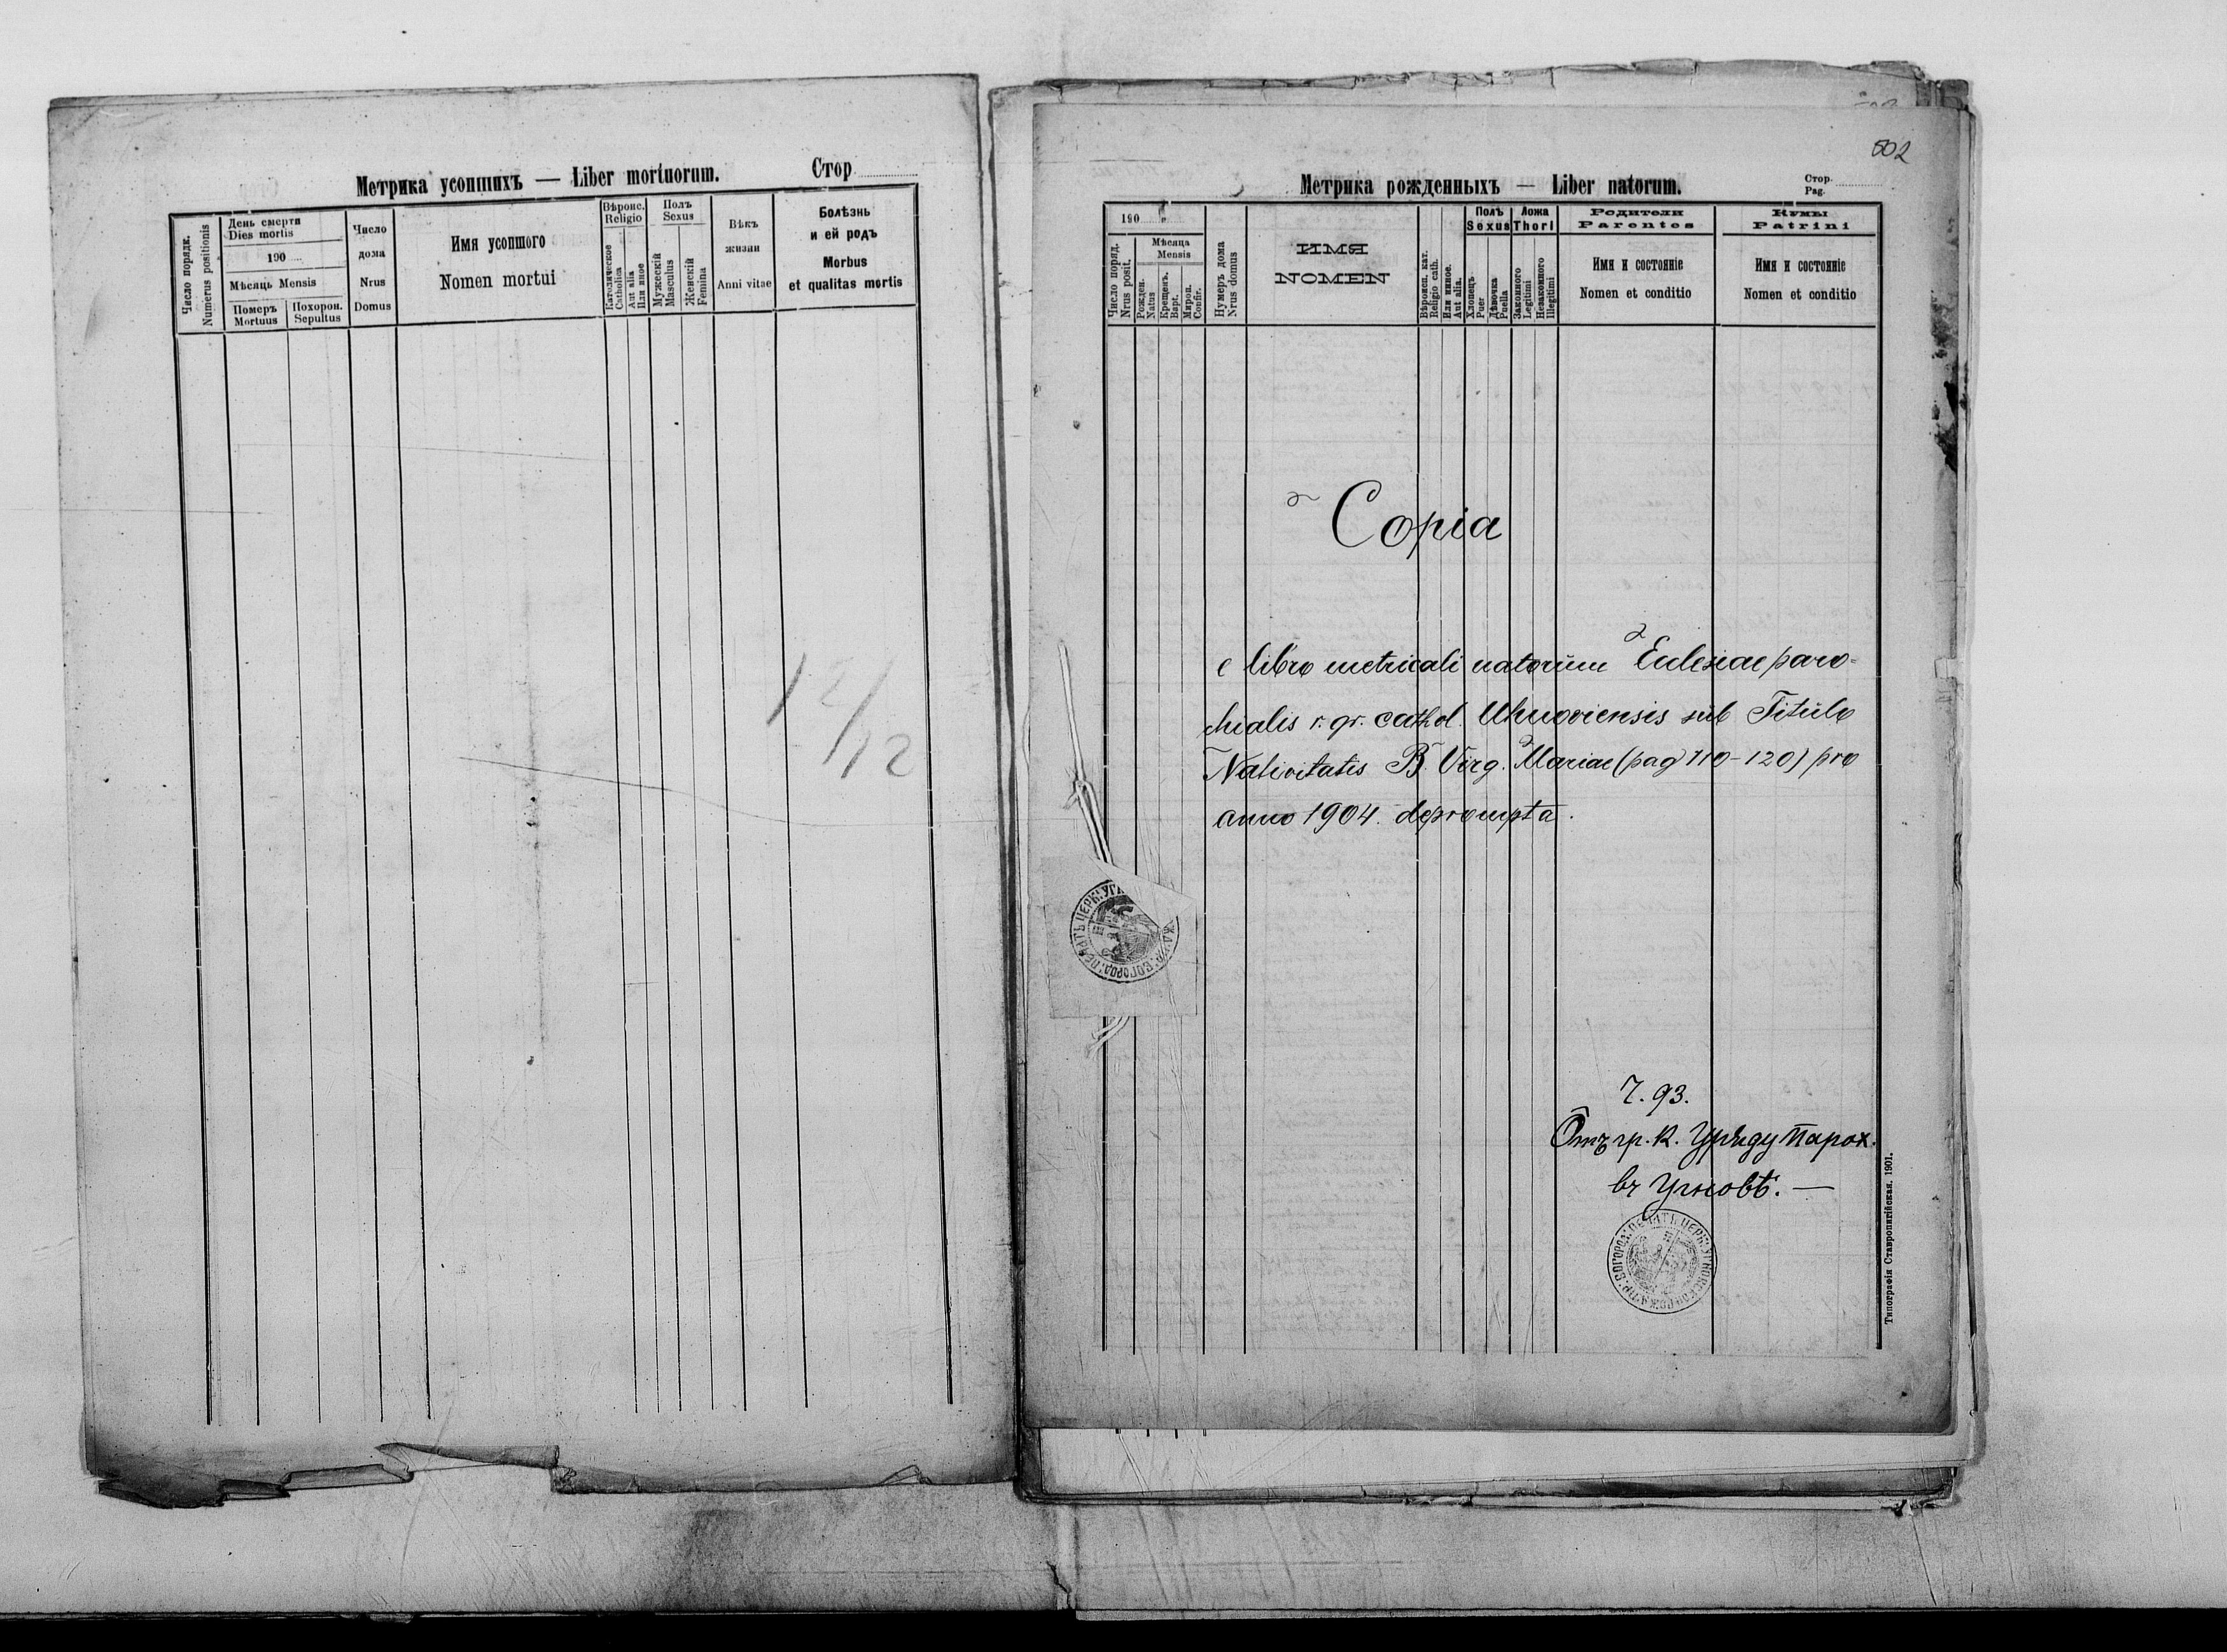 Метрика усопшихъ — Liber mortuorum.
Стор
Число порядк.
Numerus positionis
День смерти
Dies mortis
190
Мѣсяць Mensis
Померъ
Mortuus
Похорон.
Sepultus
Число
дома
Nrus
Domus
Имя усопшого
Nomen mortui
Вѣроис.
Religio
Католическое
Catholica
Aut alia
Или иное
Полъ
Sexus
Мужескій
Masculus
Женскій
Femina
Вѣкъ
жизни
Anni vitae
Болѣзнь
и ей родъ
Morbus
et qualitas mortis
12/12
502
Метрика рожденныхъ — Liber natorum.
Стор.
Pag.
190
Число поряд.
Nrus posit.
Мѣсяца
Mensis
Рожден.
Natus
Крещенъ.
Bapt.
Мироп.
Confir.
Нумеръ дома
Nrus domus
ИМЯ
NOMEN
Вѣроисп. кат.
Religio cath.
Или иное.
Aut alia.
Полъ
Sexus
Хлопецъ
Puer
Дѣвочка
Puella
Ложа
Thori
Законного
Legitimi
Незаконного
Illegitimi
Родители
Parentes
Имя и состояніе
Nomen et conditio
Кумы
Patrini
Имя и состояніе
Nomen et conditio
Copia
e libro metricali natorum Eclesiae paro-
chialis r. gr. cathol. Uhnoviensis sub Titulo
Nativitatis B. Virg. Mariae (pag 110-120) pro
anno 1904. deprompta.
Ч. 93.
Отъ гр. к. Уряду парох.
въ Угновѣ. —
ПЕЧАТЬ ЦЕРК: УГНОВСКОИ РОЖД: ПР: БОГОРОД:
Типографія Ставропигійская. 1901.